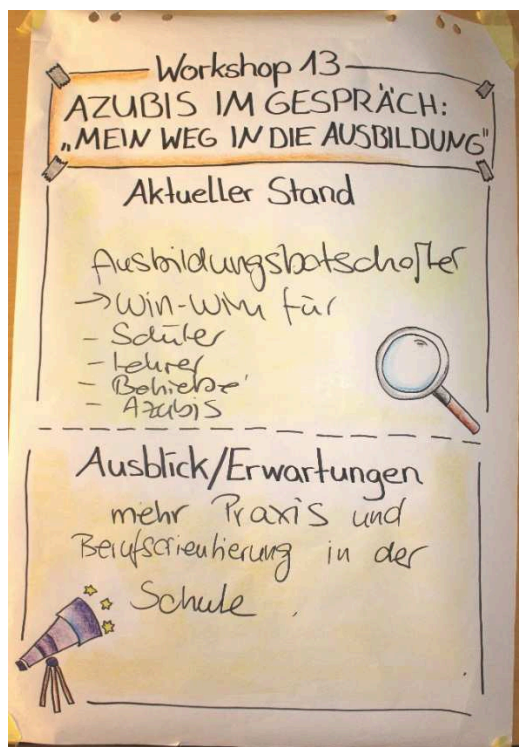 Workshop 13
AZUBIS IM GESPRÄCH:
„MEIN WEG IN DIE AUSBILDUNG"
Aktueller Stand
Ausbildungsbotschafter
→ Win-Win für
- Schüler
- Lehrer
- Betriebe
- Azubis
Ausblick/Erwartungen
mehr Praxis und
Berufsorientierung in der
Schule.